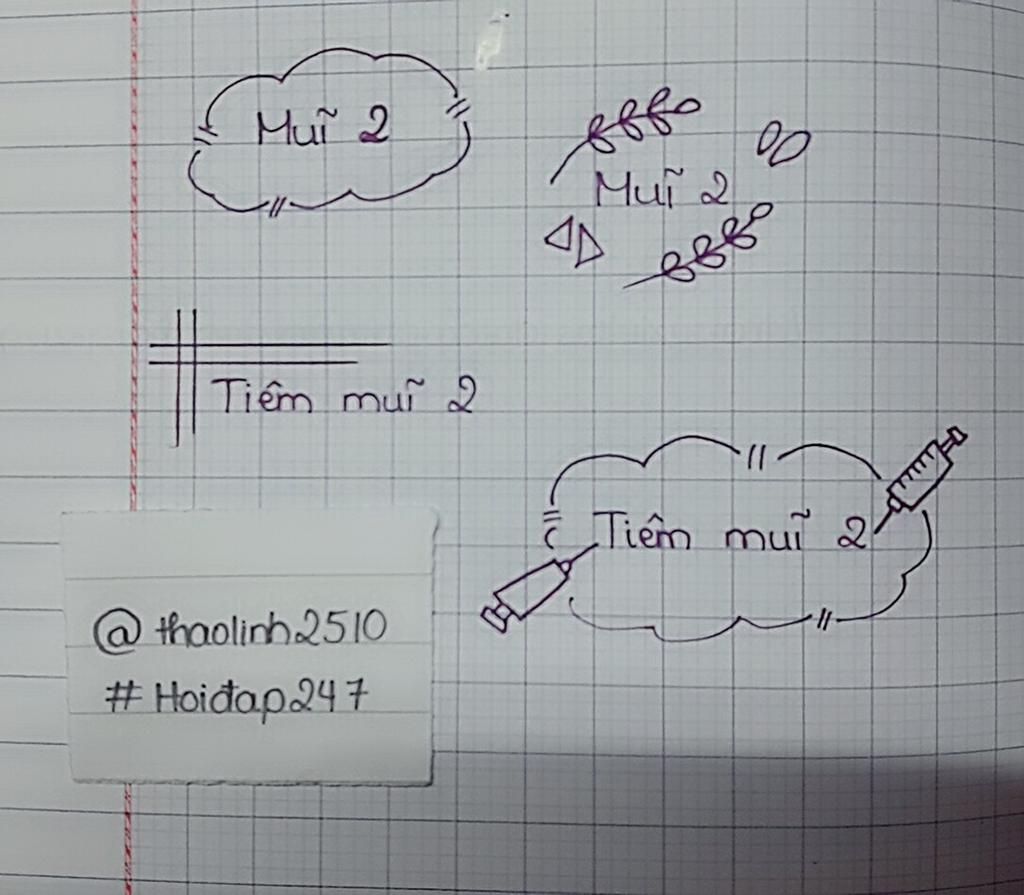 Muĩ 2
Muĩ 2
Tiêm muĩ 2
Tiêm muĩ 2
@thaolinh2510
# Hoiđap247